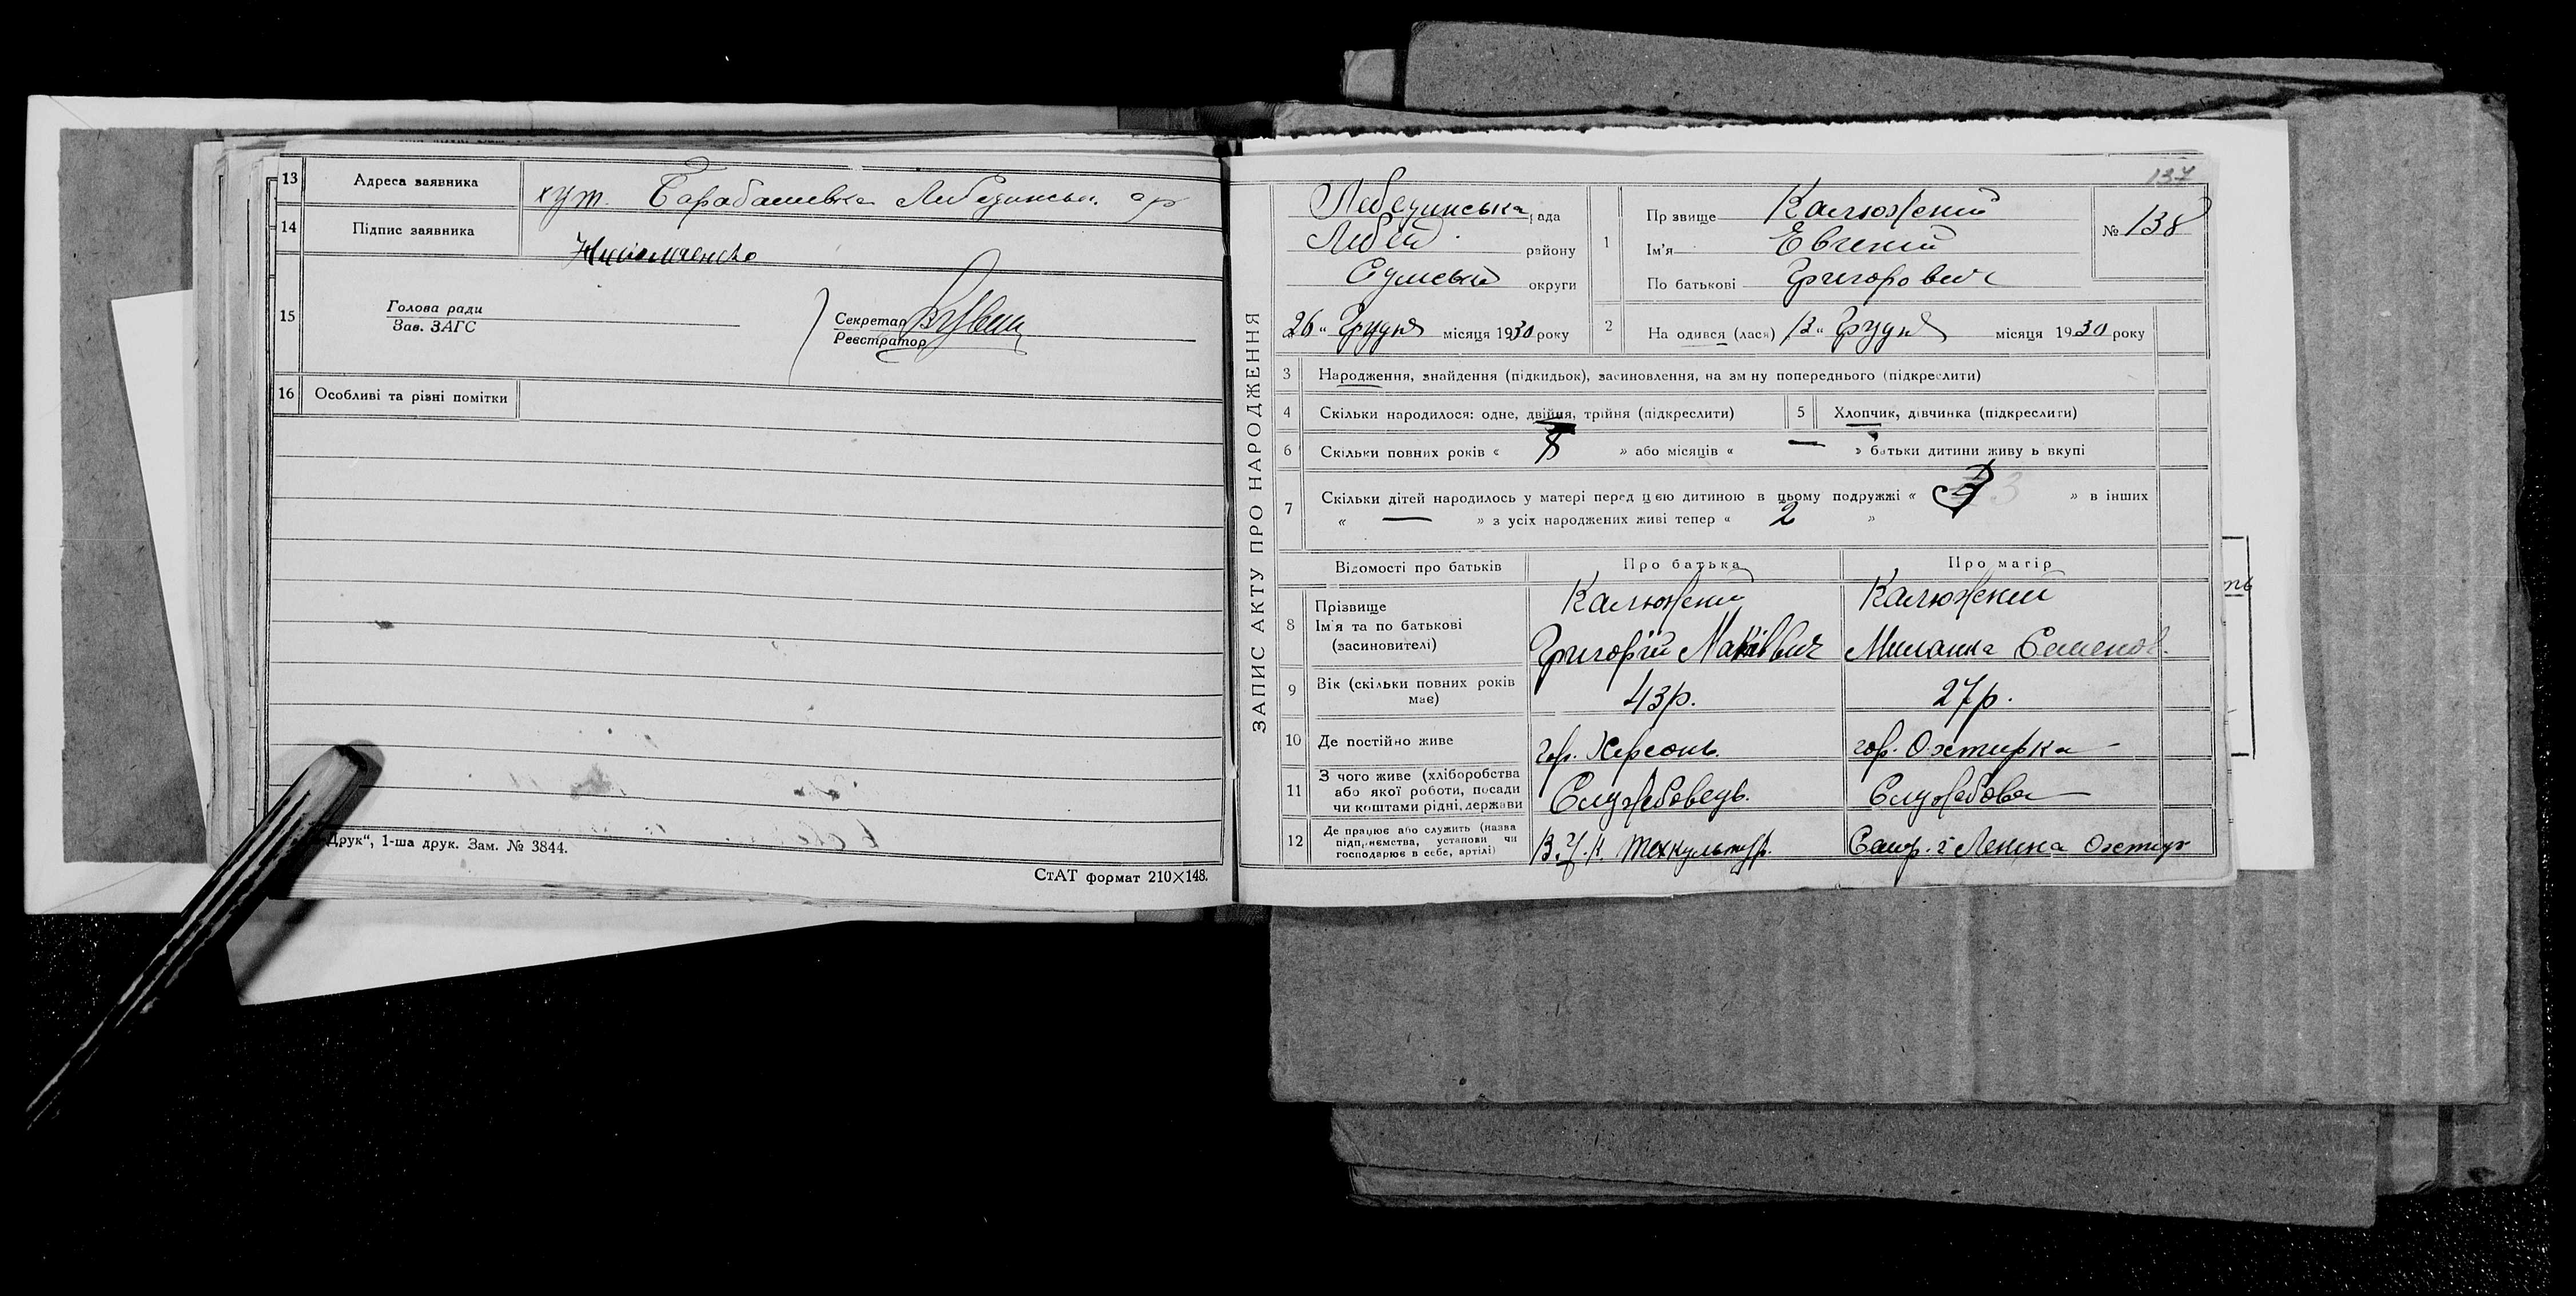 13 Адреса заявника хут. Барабашевка Лебединськ. ор
14 Підпис заявника
15 Голова ради
Зав. ЗАГС
Секретар
Реєстратор
16 Особливі та різні помітки
Друк“, 1-ша друк. Зам. № 3844.
СтАТ формат 210×148.
137
ЗАПИС АКТУ ПРО НАРОДЖЕННЯ
Лебединська рада
Лебед. району
Сумська округи
26 „ Грудня місяця 1930 року
1 Прзвище Калюжний
Ім'я Евгений
По батькові Григорович
№ 138
2 На одився (лася) 12 „ Грудня місяця 1930 року
3 Народження, знайдення (підкидьок), засиновлення, на зм ну попереднього (підкреслити)
4 Скільки народилося: одне, двійня, трійня (підкреслити) 5 Хлопчик, дівчинка (підкреслити)
6 Скільки повних років « » або місяців « — » батьки дитини живу ь вкупі
7 Скільки дітей народилось у матері перед цією дитиною в цьому подружжі « 3 » в інших
« — » з усіх народжених живі тепер « 2 »
Відомості про батьків Про батька Про матір
8 Прізвище
Ім'я та по батькові
(засиновителі)
Калюжний
Григорій
Калюжний
Миланка Семенов.
9 Вік (скільки повних років має) 43р. 27р.
10 Де постійно живе гор. Херсонь. гор. Охтирка
11 З чого живе (хліборобства
або якої роботи, посади
чи коштами рідні, держави
Службовець. Службова
12 Де працює або служить (назва
підприємства, установи чи
господарює в себе, артілі)
В.У.К. Техкультур. Леніна Охтир